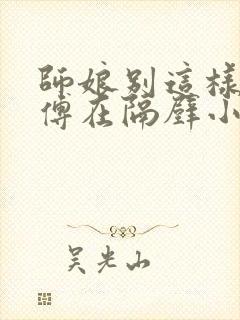 師娘別這樣
傅在隔壁小
吳光山